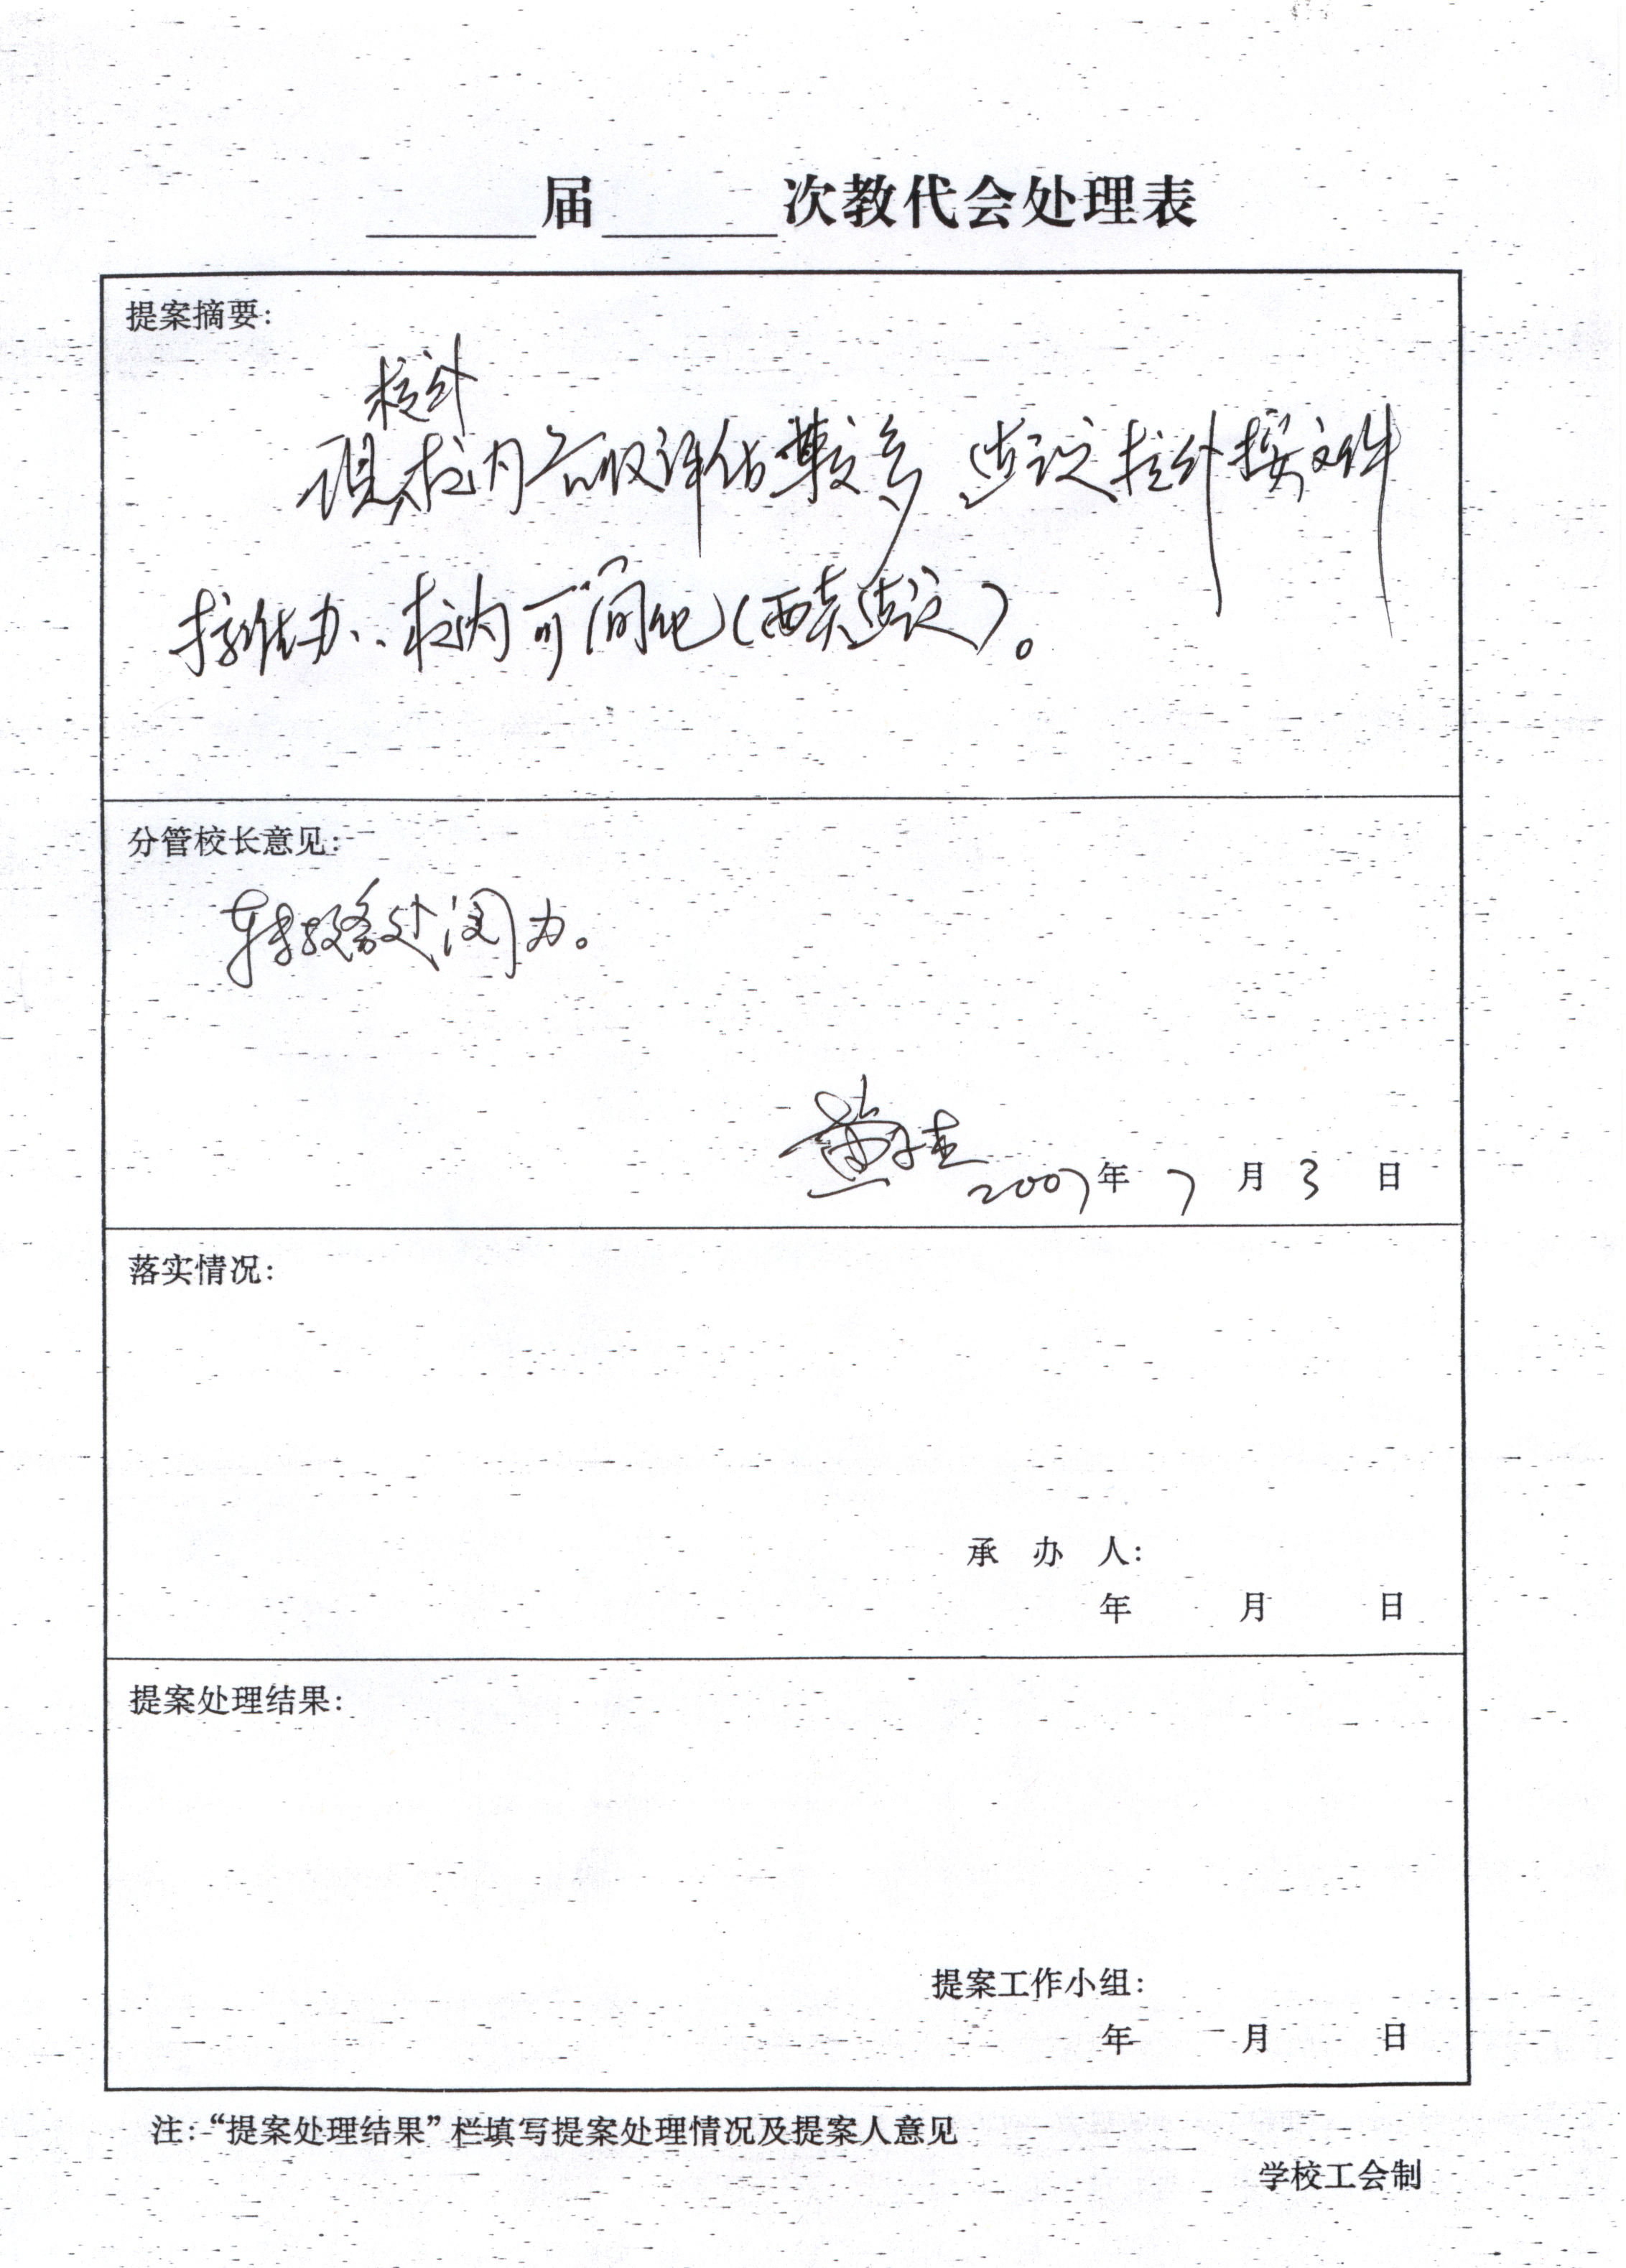 届 次教代会处理表
提案摘要:
校外
现校内各级评估较多 建议校外按文件
标准办.. 校内可简化(西英建议)。
分管校长意见:
转教务处阅办。
2007年 7 月 3 日
落实情况:
承 办 人:
年 月 日
提案处理结果:
提案工作小组:
年 月 日
注:“提案处理结果”栏填写提案处理情况及提案人意见
学校工会制